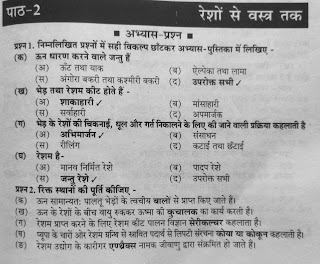 पाठ-2 रेशों से वस्त्र तक
■ अभ्यास-प्रश्न ■
प्रश्न 1. निम्नलिखित प्रश्नों में सही विकल्प छाँटकर अभ्यास-पुस्तिका में लिखिए -
(क) ऊन धारण करने वाले जन्तु हैं
(अ) ऊँट तथा याक (ब) ऐल्पेका तथा लामा
(स) अंगोरा बकरी तथा कश्मीरी बकरी (द) उपरोक्त सभी ✓
(ख) भेड़ तथा रेशम कीट होते हैं -
(अ) शाकाहारी ✓ (ब) मांसाहारी
(स) सर्वाहारी (द) अपमार्जक
(ग) भेड़ के रेशों की चिकनाई, धूल और गर्त निकालने के लिए की जाने वाली प्रक्रिया कहलाती है
(अ) अभिमार्जन ✓ (ब) संसाधन
(स) रीलिंग (द) कटाई तथा छँटाई
(घ) रेशम है-
(अ) मानव निर्मित रेशे (ब) पादप रेशे
(स) जन्तु रेशे ✓ (द) उपरोक्त सभी
प्रश्न 2. रिक्त स्थानों की पूर्ति कीजिए -
(क) ऊन सामान्यतः पालतू भेड़ों के त्वचीय बालों से प्राप्त किए जाते हैं।
(ख) ऊन के रेशों के बीच वायु रुककर ऊष्मा की कुचालक का कार्य करती है।
(ग) रेशम प्राप्त करने के लिए रेशम कीट पालन विज्ञान सेरीकल्चर कहलाता है।
(घ) प्यूपा के चारों ओर रेशम ग्रन्थि से स्रावित पदार्थ से लिपटी संरचना कोया या कोकून कहलाती है।
(ङ) रेशम उद्योग के कारीगर एन्थ्रैक्स नामक जीवाणु द्वारा संक्रमित हो जाते हैं।